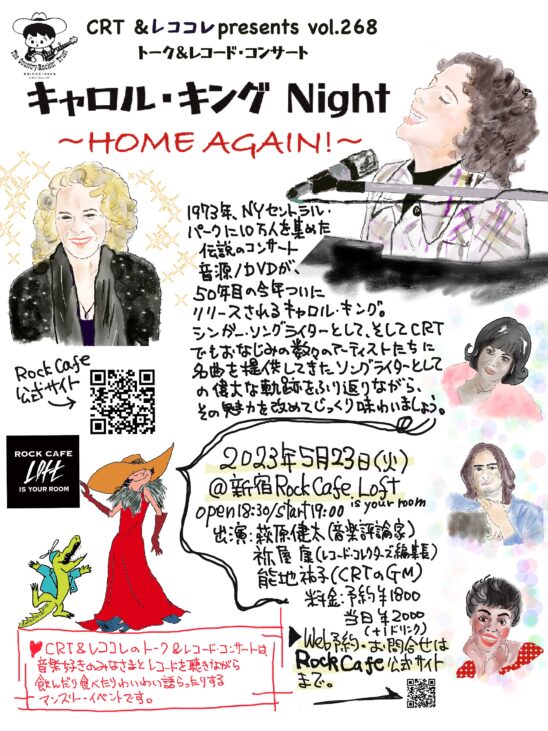 CRT & レココレ presents vol.268
トーク&レコード・コンサート
キャロル・キング Night
〜HOME AGAIN!〜
1973年、NYセントラル・
パークに10万人を集めた
伝説のコンサート
音源/DVDが、
50年目の今年ついに
リリースされるキャロル・キング。
シンガー・ソングライターとして、そしてCRT
でもおなじみの数々のアーティストたちに
名曲を提供してきたソングライターとして
の偉大な軌跡をふり返りながら、
その魅力を改めてじっくり味わいましょう。
Rock Cafe
公式サイト
ROCK CAFE
LOFT
IS YOUR ROOM
2023年5月23日(火)
@新宿 Rock Cafe Loft
is your room
open 18:30/start 19:00
出演:萩原健太(音楽評論家)
祢屋康(レコード・コレクターズ編集長)
能地祐子(CRTのGM)
料金:予約¥1800
当日¥2000
(+1ドリンク)
▶Web予約・お問合せは
Rock Cafe 公式サイト
まで。
♥CRT&レココレのトーク&レコード・コンサートは
音楽好きのみなさまとレコードを聴きながら
飲んだり食べたりわいわい語らったりする
マンスリー・イベントです。